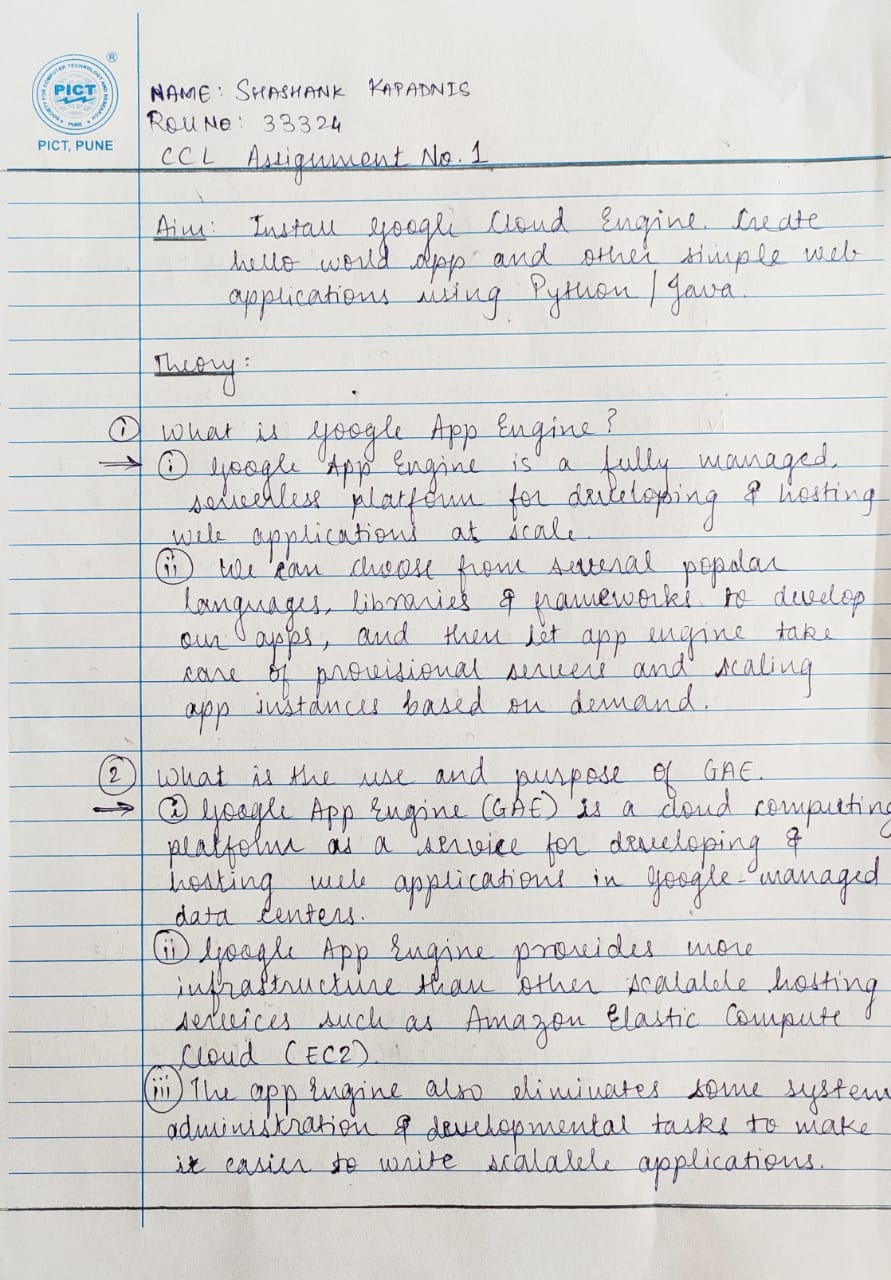 ®
SOCIETY FOR COMPUTER TECHNOLOGY AND RESEARCH
PICT
PUNE
PICT, PUNE
NAME: SHASHANK KAPADNIS
ROLL NO: 33324
CCL Assignment No. 1
Aim: Install Google Cloud Engine. Create
hello world app and other simple web
applications using Python / Java.
Theory:
① What is Google App Engine?
→ ⓘ Google App Engine is a fully managed,
serverless platform for developing & hosting
web applications at scale.
ⓘⓘ We can choose from several popular
languages, libraries & frameworks to develop
our apps, and then let app engine take
care of provisional servers and scaling
app instances based on demand.
② What is the use and purpose of GAE.
→ ⓘ Google App Engine (GAE) is a cloud computing
platform as a service for developing &
hosting web applications in Google-managed
data centers.
ⓘⓘ Google App Engine provides more
infrastructure than other scalable hosting
services such as Amazon Elastic Compute
Cloud (EC2).
ⓘⓘⓘ The app Engine also eliminates some system
administration & developmental tasks to make
it easier to write scalable applications.